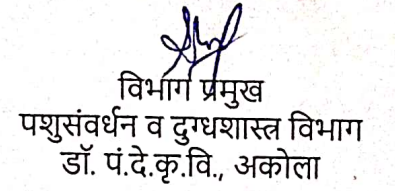 विभाग प्रमुख
पशुसंवर्धन व दुग्धशास्त्र विभाग
डॉ. पं.दे.कृ.वि., अकोला